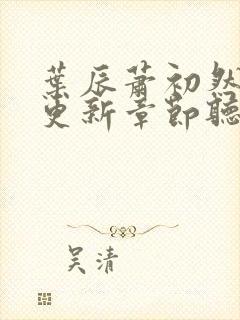 葉辰蕭初然
更新章節聽
吴清